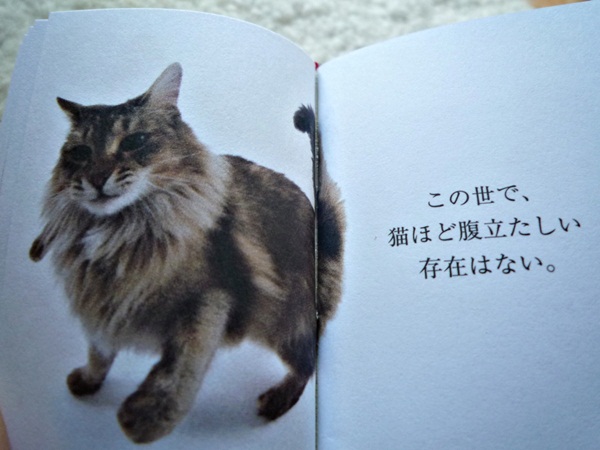 この世で、
猫ほど腹立たしい
存在はない。